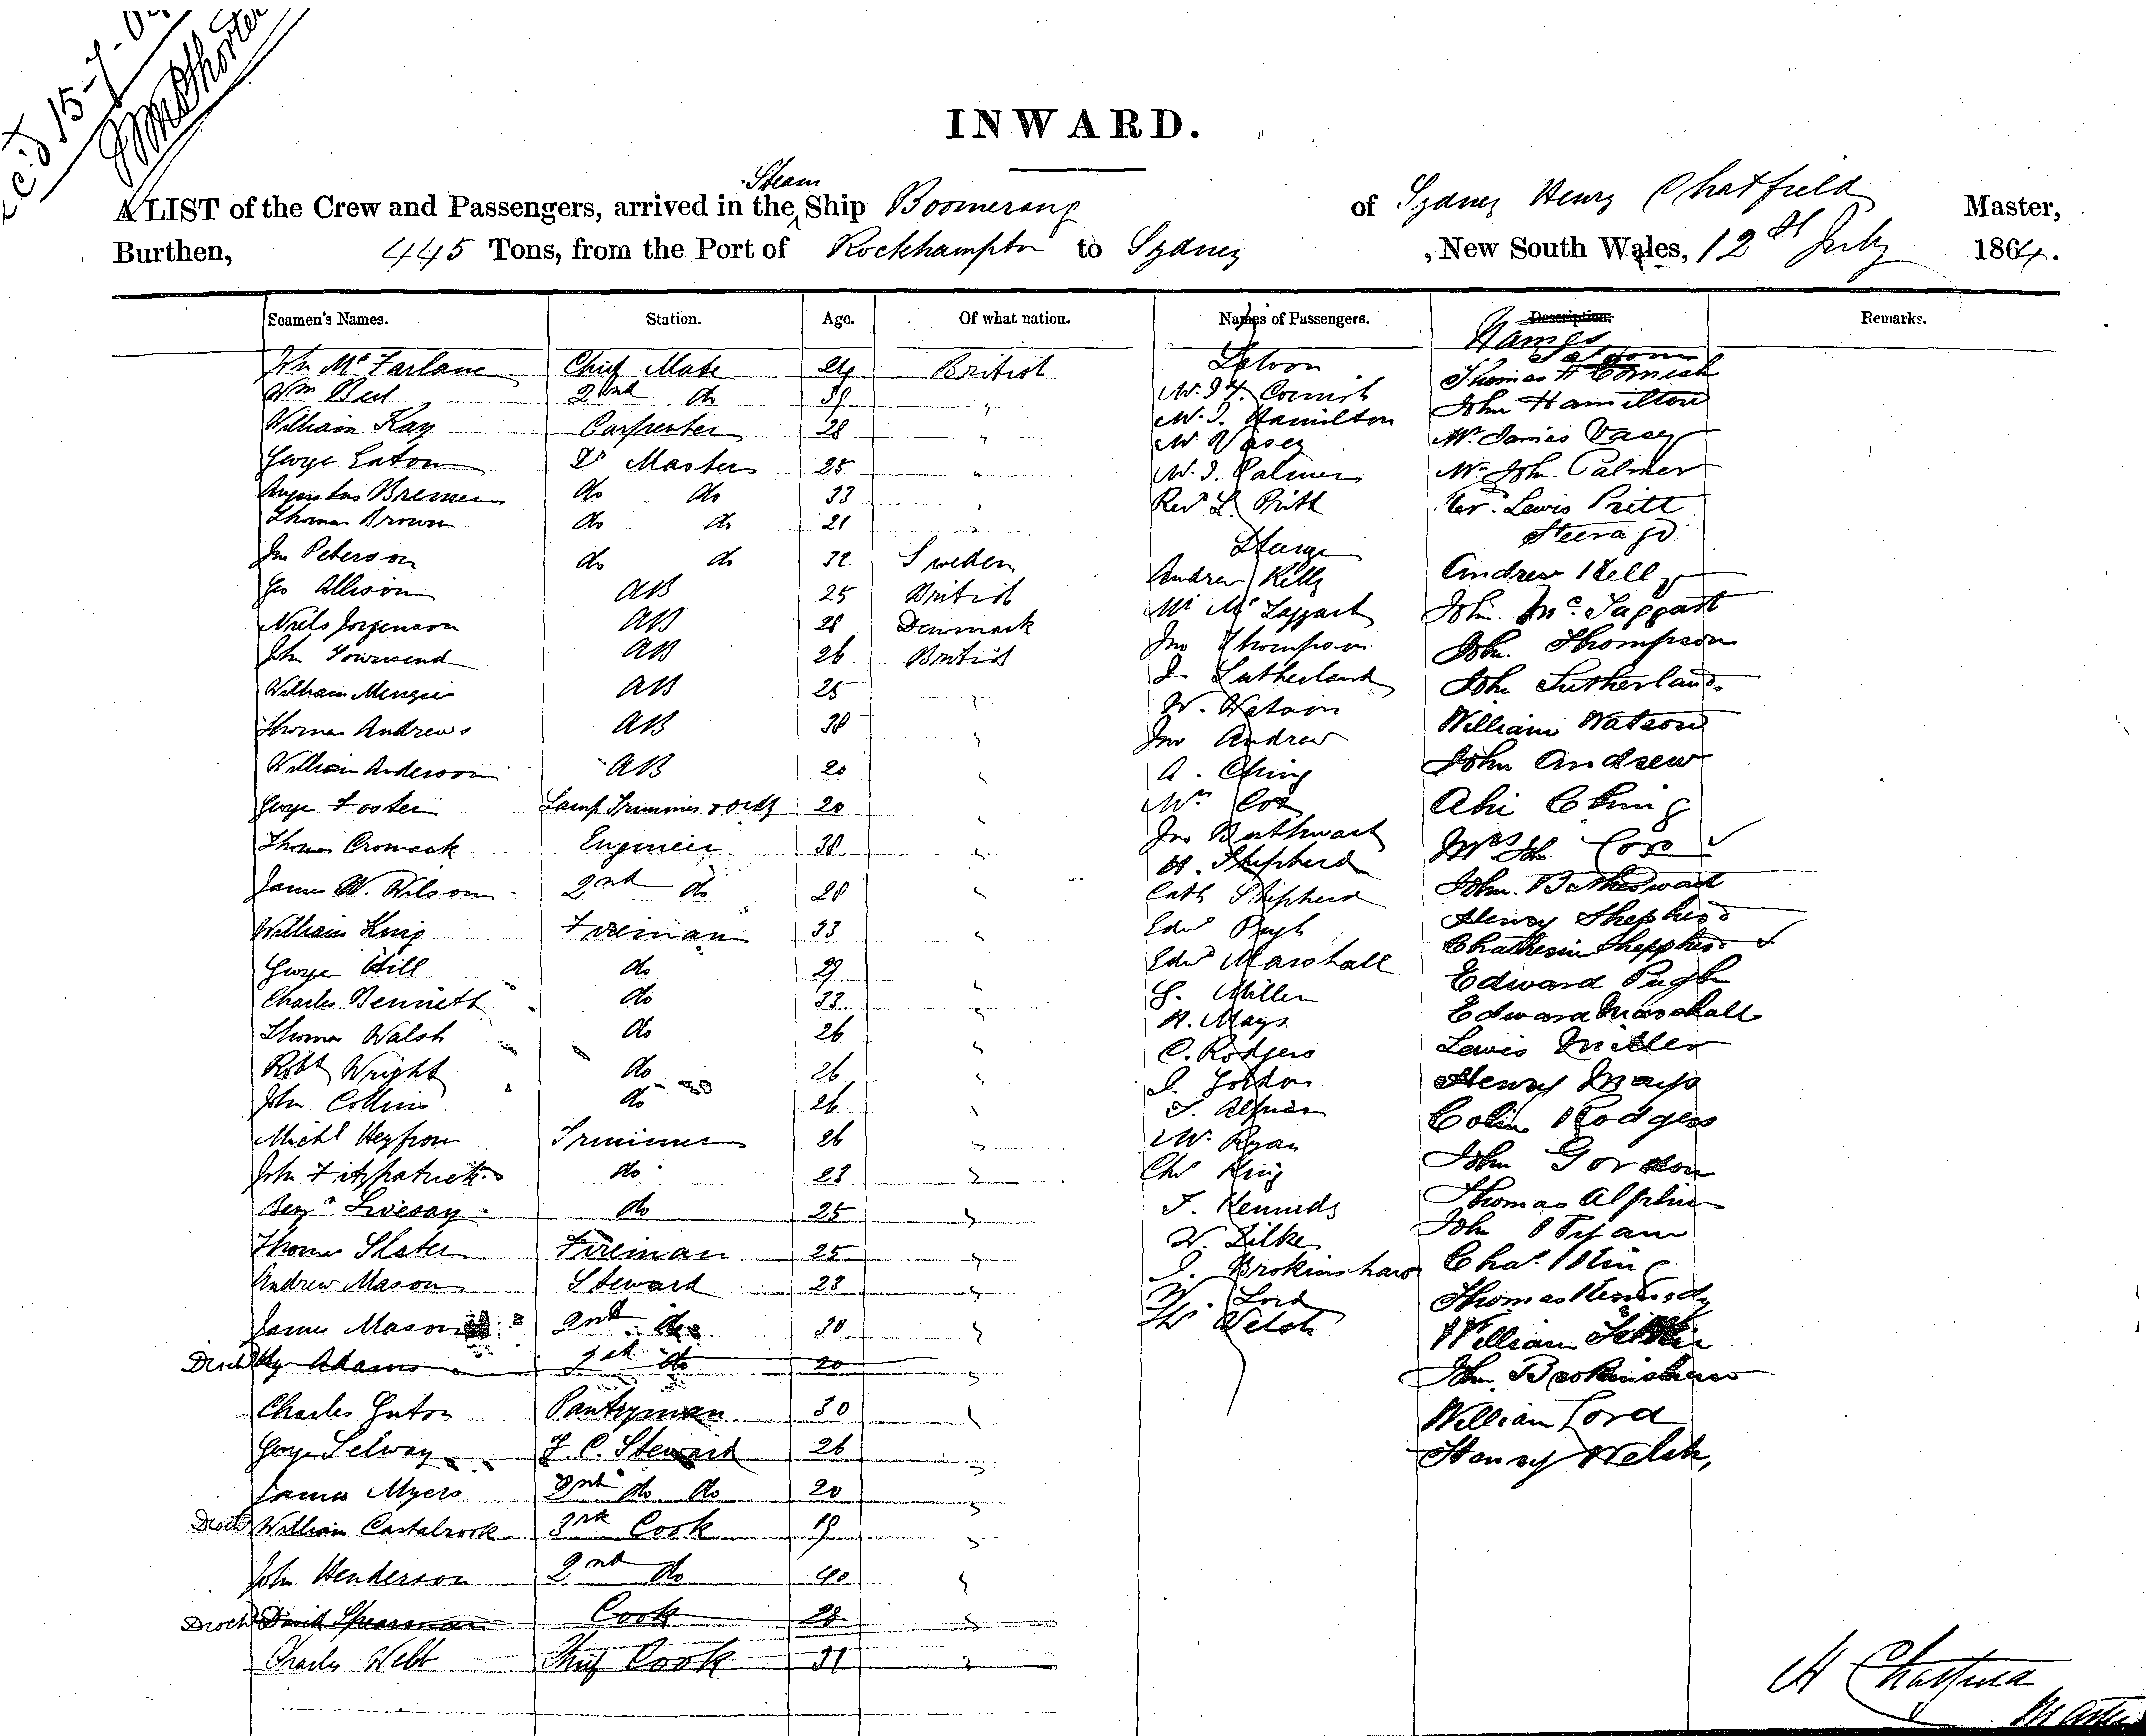 INWARD.
Steam
A LIST of the Crew and Passengers, arrived in the Ship Boomerang of Sydney Henry Chatfield Master,
Burthen, 445 Tons, from the Port of Rockhampton to Sydney , New South Wales, 12th July 1864.
Seamen's Names. Station. Age. Of what nation. Names of Passengers. Description. Remarks.
Names
John McFarlane Chief Mate 24 British Saloon Saloon
Wm Bell 2nd do 39 " Cornish Thomas H Cornish
William Kay Carpenter 28 " Mr. J. Hamilton John Hamilton
George Eaton Qr Master 25 " Mr Vasey Mr James Vasey
Augustus Bremen do do 33 " Mr. J. Palmer Mr John Palmer
Thomas Brown do do 21 " Revd L. Pritt Revd. Lewis Pritt
Steerage Steerage
Jno Peterson do do 32 Sweden Andrew Kelly Andrew Kelly
Geo Allison AB 25 British Mr McTaggart John McTaggart
Niels Jorgenson AB 28 Denmark Jno Thompson John Thompson
John Townsend AB 26 British J. Sutherland John Sutherland
William Menzie AB 25 " W. Watson William Watson
Thomas Andrews AB 38 " Jno Andrew John Andrew
William Anderson AB 20 " A. Ching Ahi Ching
George Foster Lamp Trimmer & 20 " Mrs Cox Mrs Jh Cox
Thomas Cromack Engineer 38 " Jno John
James W. Wilson 2nd do 28 " H. Shepherd Henry Shepherd
William King Fireman 33 " Cath Shepherd
George Hill do 29 " Edwd Pugh Edward Pugh
Charles Bennett do 33 " Edwd Marshall Edward Marshall
Thomas Walsh do 26 " Miller Lewis Miller
Robt Wright do 26 " H. Mays Henry Mays
John Collins do 26 " C. Rodgers Colin Rodgers
Michl Trimmer 26 " J. Gordon John Gordon
John Fitzpatrick do 23 " T. Thomas
Benjn Livesay do 25 " Ryan John Ryan
Thomas Slater Fireman 25 " Chs King Chas. King
Andrew Mason Steward 23 " T. Kennedy Thomas Kennedy
James Mason 2nd do 30 " W. William
Disch Hy Adams do 20 " J. Brokinshaw John Brokinshaw
Charles Pantryman 30 " W. Lord William Lord
George Selway F. C. Steward 26 " Hy Welsh Henry Welsh,
James Myers 2nd do do 20 "
Disch William Castalrook 3rd Cook 19 "
John Henderson 2nd do 40 "
Disch David Spearman Cook 28 "
Charles Webb Chief Cook 31 "
H Chatfield
Master